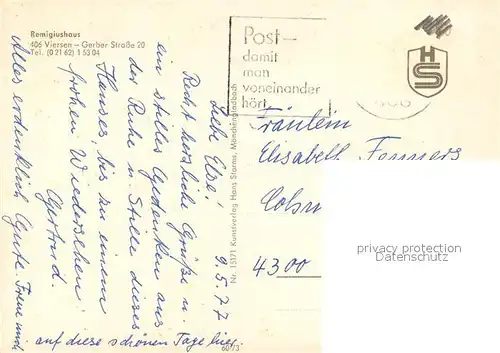 Remigiushaus
406 Viersen – Gerber Straße 20
Tel. (0 21 62) 1 53 04
Post –
damit
man
voneinander
hört
HS
9.5.77
Liebe Else!
Recht herzliche Grüße u.
ein stilles Gedenken aus
der Ruhe u. Stille dieses
Hauses, bis zu einem
frohen Wiedersehen
Gertrud.
Alles erdenklich Gute. Freue mich
auf diese schönen Tage hier.
Nr. 15171 Kunstverlag Hans Storms, Mönchengladbach
Fräulein
Elisabeth
4300
privacy protection
Datenschutz